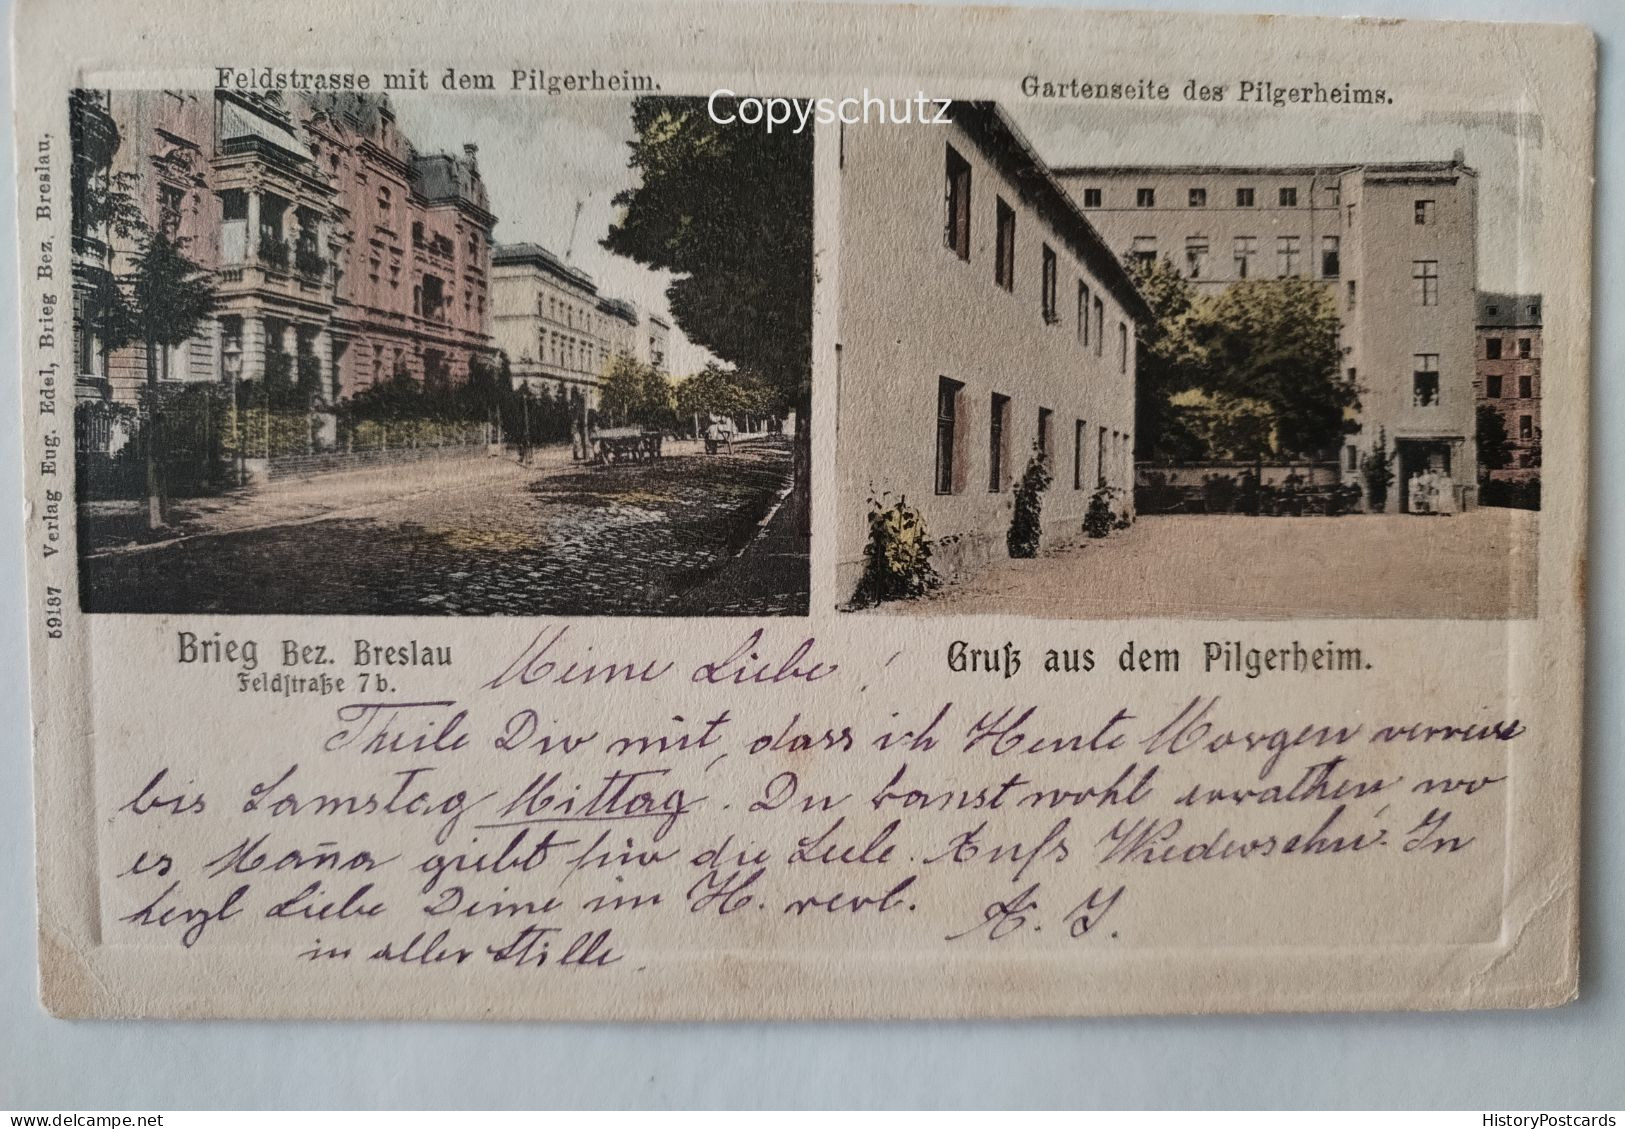 Feldstrasse mit dem Pilgerheim.
Copyschutz
Gartenseite des Pilgerheims.
59187 Verlag Eug. Edel, Brieg Bez. Breslau.
Brieg Bez. Breslau
Feldstraße 7b.
Gruß aus dem Pilgerheim.
Meine Liebe!
Theile Dir mit, dass ich Heute Morgen verreise
bis Samstag Mittag. Du kanst wohl errathen, wo
es Mana giebt für die Seele. Aufs Wiedersehn. In
herzl Liebe Deine im H. verb. A. J.
in aller Stille.
delcampe.net
HistoryPostcards